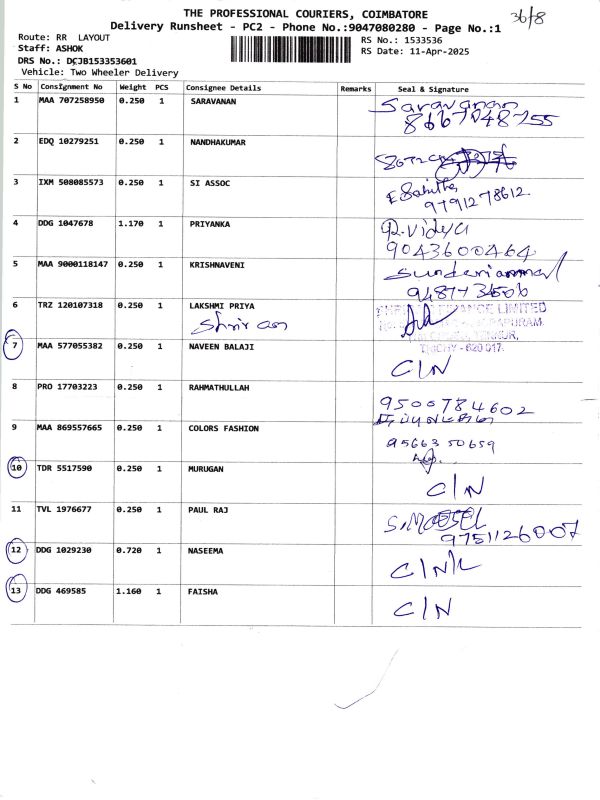 THE PROFESSIONAL COURIERS, COIMBATORE
36/8
Delivery Runsheet - PC2 - Phone No.:9047080280 - Page No.:1
Route: RR LAYOUT
RS No.: 1533536
Staff: ASHOK
RS Date: 11-Apr-2025
DRS No.: DCJB153353601
Vehicle: Two Wheeler Delivery
S No Consignment No Weight PCS Consignee Details Remarks Seal & Signature
1 MAA 707258950 0.250 1 SARAVANAN Saravanan
8667048755
2 EDQ 10279251 0.250 1 NANDHAKUMAR
3 IXM 508085573 0.250 1 SI ASSOC
9791278612
4 DDG 1047678 1.170 1 PRIYANKA R.Vidya
9043600464
5 MAA 9000118147 0.250 1 KRISHNAVENI Sunderiammal
9487736506
6 TRZ 120107318 0.250 1 LAKSHMI PRIYA
FINANCE LIMITED
TRICHY - 620 017.
7 MAA 577055382 0.250 1 NAVEEN BALAJI C/N
8 PRO 17703223 0.250 1 RAHMATHULLAH 9500784602
9 MAA 869557665 0.250 1 COLORS FASHION 9566350659
10 TDR 5517590 0.250 1 MURUGAN C/N
11 TVL 1976677 0.250 1 PAUL RAJ
9751126007
12 DDG 1029230 0.720 1 NASEEMA
13 DDG 469585 1.160 1 FAISHA C/N